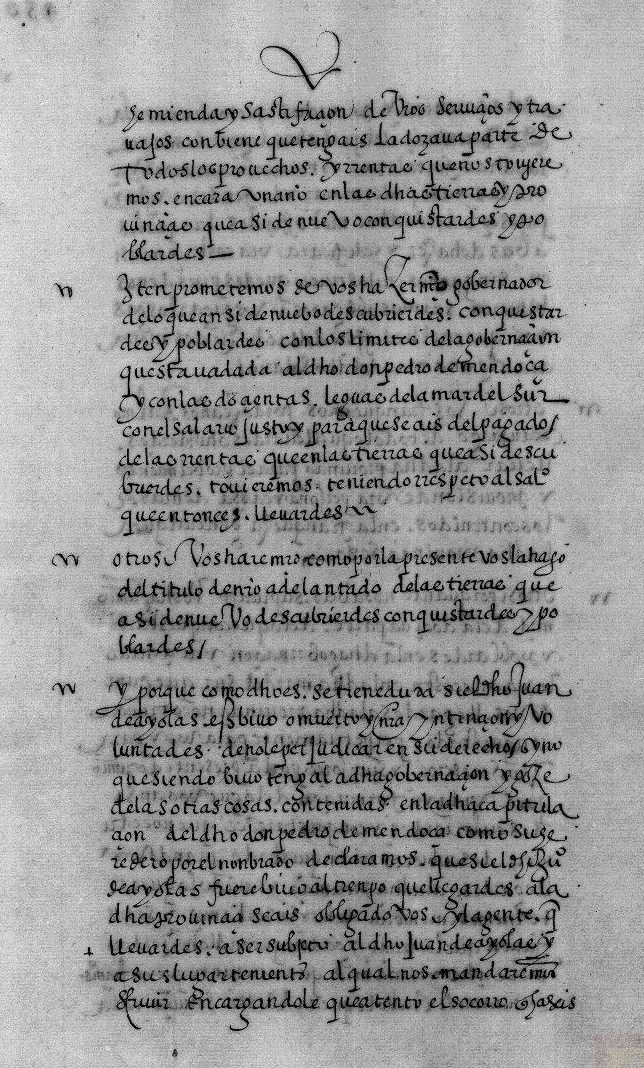 hemienda y satisfaçion de vros serviçios y tra
vajos conbiene que tengais la dozava parte de
todos los provechos. y rrentas que nos toviere
mos. en cada un año en las dhas tierras y pro
vinçias que asi de nuevo conquistardes y po
blardes
yten prometemos de vos hazer mro gobernador
de lo que ansi de nuebo descubrierdes. conquistar
des y poblardes con los limites de la gobernaçion
questava dada al dho don pedro de mendoça
y con las dozientas. leguas de la mar del sur
con el salario justo y para que seais del pagado/
de las rrentas que en las tierras que asi descu
brierdes. tovieremos. teniendo rrespeto al salº
que entonçes. llevardes
otrosi vos haremos como por la presente vos la hago
del titulo de nro adelantado de las tierras que
asi de nuevo descubrierdes conquistardes y po
blardes/
y porque como dho es. se tiene duda si el dho Juan
de ayolas es bivo o muerto y nra yntinçion y vo
luntad es. de no le perjudicar en su derecho/ sino
que siendo bivo tenga la dha gobernaçion y goze
de las otras cosas. contenidas en la dha capitula
çion del dho don pedro de mendoça como su he
redero por el nonbrado declaramos. que si el dho juº
de ayolas fuere bivo al tienpo que llegardes a la
dha provinçia seais obligado vos y la gente. q
llevardes. a ser subjeto al dho Juan de ayolas y
a su lugarteniente al qual nos mandaremos
escrivir encargandole que atento el socorro q haseis